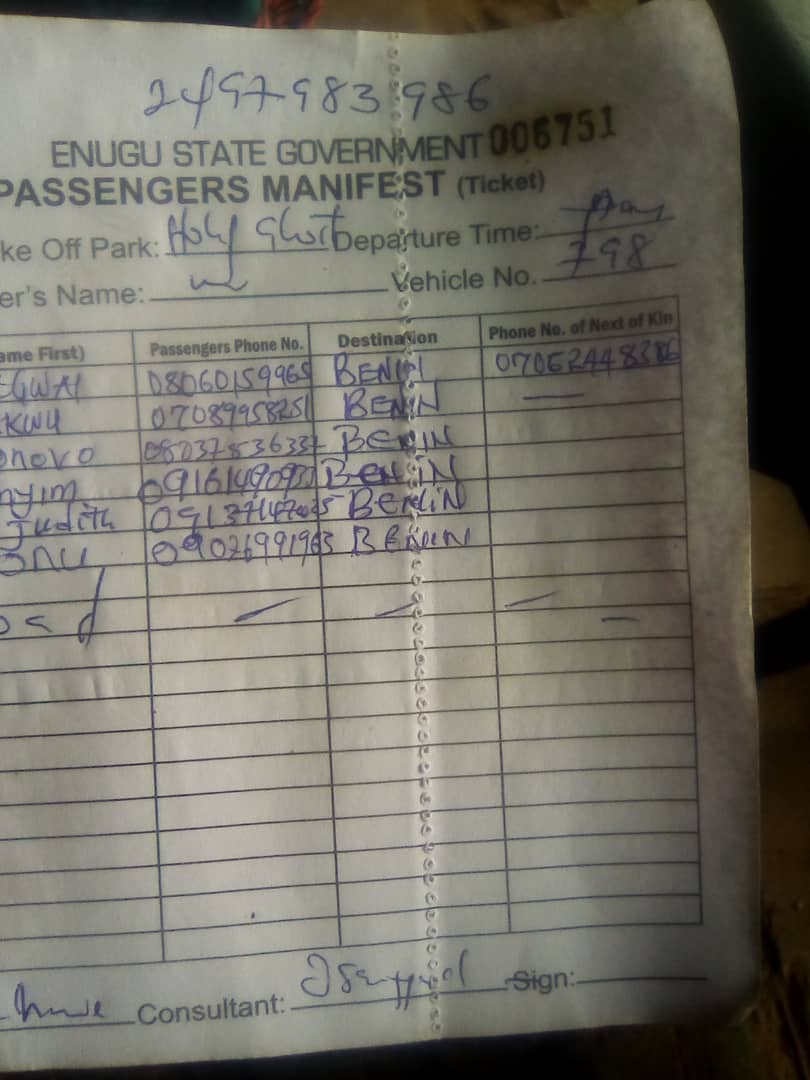 2497983986
ENUGU STATE GOVERNMENT 006751
PASSENGERS MANIFEST (Ticket)
ke Off Park: Holy Ghost Departure Time:
er's Name: Vehicle No. 798
ame First) Passengers Phone No. Destination Phone No. of Next of Kin
EGWAI 08060159965 BENIN
KWU 07089958251 BENIN —
onovo BENIN
nyim BENIN
Judith BENIN
onu 09026991963 BENIN
Consultant: Sign: